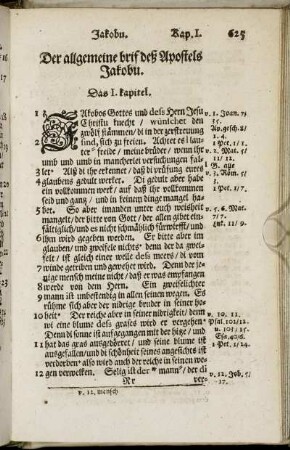 Jakobu. Kap. I. 625
Der allgemeine brif deß Apostels
Jakobu.
Das I. kapitel.
1 JAkobus Gottes und deß Hern Jesu
Christu knecht / wünschet den
zwölf stämmen / di in der zerstreuung
2 sind, sich zu freien. Achtet es lau-
ter freide / meine brüder / wenn ihr
umb und umb in mancherlei versuchungen fal-
3 let Als di ihr erkennet / daß di prüfung eures
4 glaubens geduld werket. Di gedult aber habe
ein vollkommen werk / auf daß ihr vollkommen
seid und ganz / und in keinem dinge mangel ha-
5 bet. So aber imanden unter euch weisheit
mangelt / der bitte von Gott / der allen gibet ein-
fältiglich / und es nicht schmählich fürwirfft / und
6 ihm wird gegeben werden. Er bitte aber im
glauben / und zweifele nichts denn der da zwei-
felt / is gleich einer welle deß meers / di vom
7 winde getriben und gewebet wird. Denn der je-
nige mensch meine nicht / daß er was empfangen
8 werde von dem Hern. Ein zweifelichter
mann ist unbeständig in allen seinen wegen. Es
rühme sich aber der nidrige bruder in seiner ho-
10 heit Der reiche aber in seiner nidrigkeit / denn
wi eine blume deß grases wird er vergehen
11 Denn di sonne ist aufgegangen mit der hitze / und
hat das gras ausgedörret / und seine blume ist
ausgefallen / und di schönheit seines angesichts ist
verderbet also wird auch der reiche in seinen we-
12 gen verwelken. Selig ist der mann / der di
Rr ver-
v. 12. mensch
v. 1. Joan. 7/
35.
Ap. gesch. 2/
1. Pet. 1/1.
v. 2. Mat. 5/
11/12.
v. 3. Röm. 5/
1. Pet. 1/7.
v. 5. 6. Mat.
7/7.
Luk. 11/9.
v. 10. 11.
Psal. 102/12.
u. 103/15.
Esa. 40/6.
1 Pet. 1/24.
v. 12. Job. 5/
17.